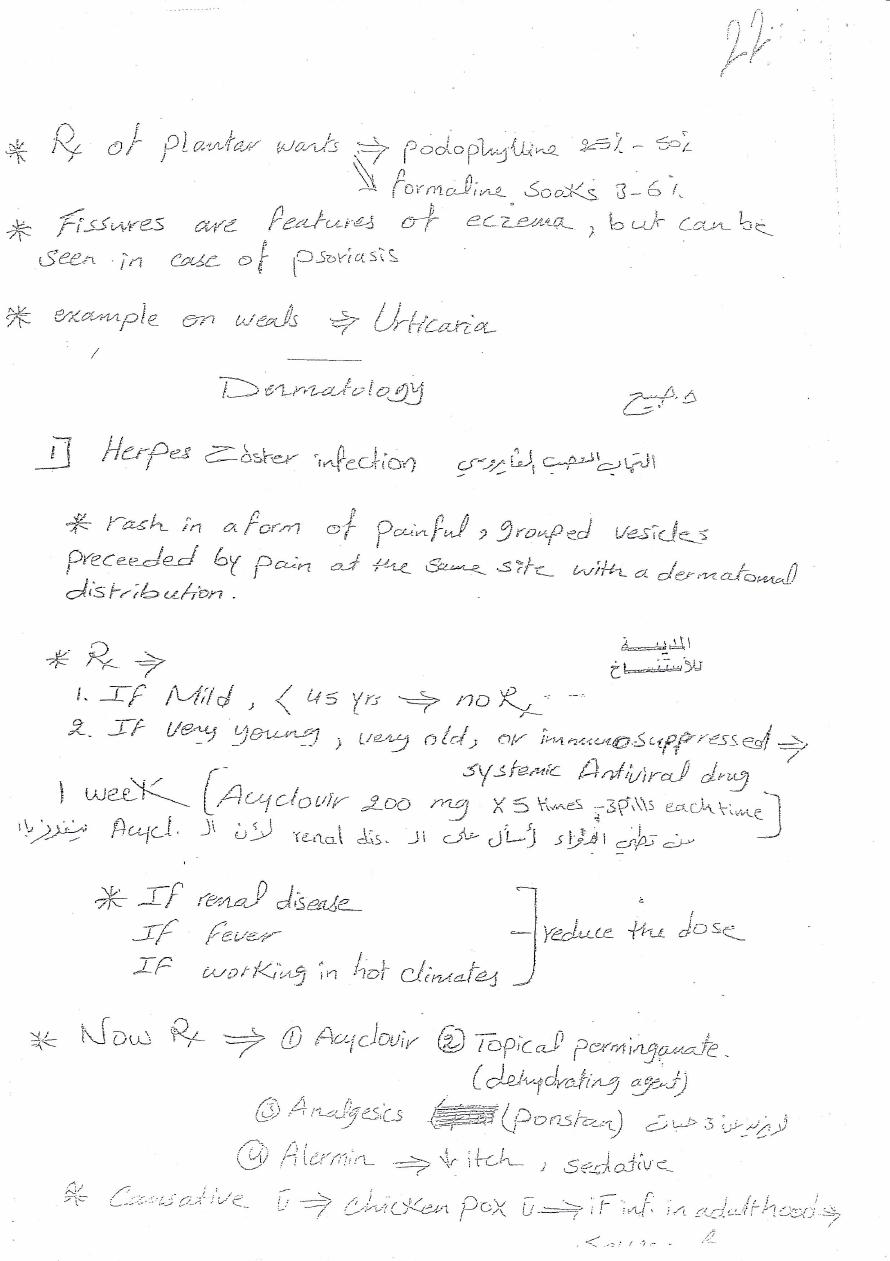 22
* Rx of plantar warts ⇒ podophylline 25% - 50%
⇘ formaline soaks 3-6%
* Fissures are features of eczema, but can be
seen in case of psoriasis
* example on weals ⇒ Urticaria
Dermatology
1] Herpes Zoster infection التهاب العصب الفايروسي
* rash in a form of painful, grouped vesicles
preceeded by pain at the same site with a dermatomal
distribution.
المدينة
للاستنساخ
* Rx ⇒
1. If Mild, < 45 yrs ⇒ no Rx
2. If very young, very old, or immunosuppressed ⇒
systemic Antiviral drug
1 week [Acyclovir 200 mg x 5 times, 3 pills each time]
الدواء أسأل على الـ renal dis. لأن الـ Acycl.
* If renal disease
If fever
If working in hot climates
] reduce the dose
* Now Rx ⇒ ① Acyclovir ② Topical perminganate.
(dehydrating agent)
③ Analgesics (Ponstan) 3 حبات
④ Alermin ⇒ ↓ itch, sedative
* Causative ū ⇒ chicken pox ū ⇒ if inf. in adulthood ⇒